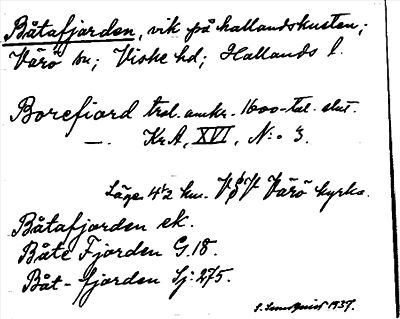 Båtafjorden, vik på hallandskusten;
Värö sn; Viske hd; Hallands l.
Borefiord trol. omkr. 1600-tal. slut.
—. Kr.A, XVI, N:o 3.
Läge: 4½ km. VpV Värö kyrka.
Båtafjorden ek.
Båte Fjorden G. 18.
Båt-fjorden Sj: 275.
1937.